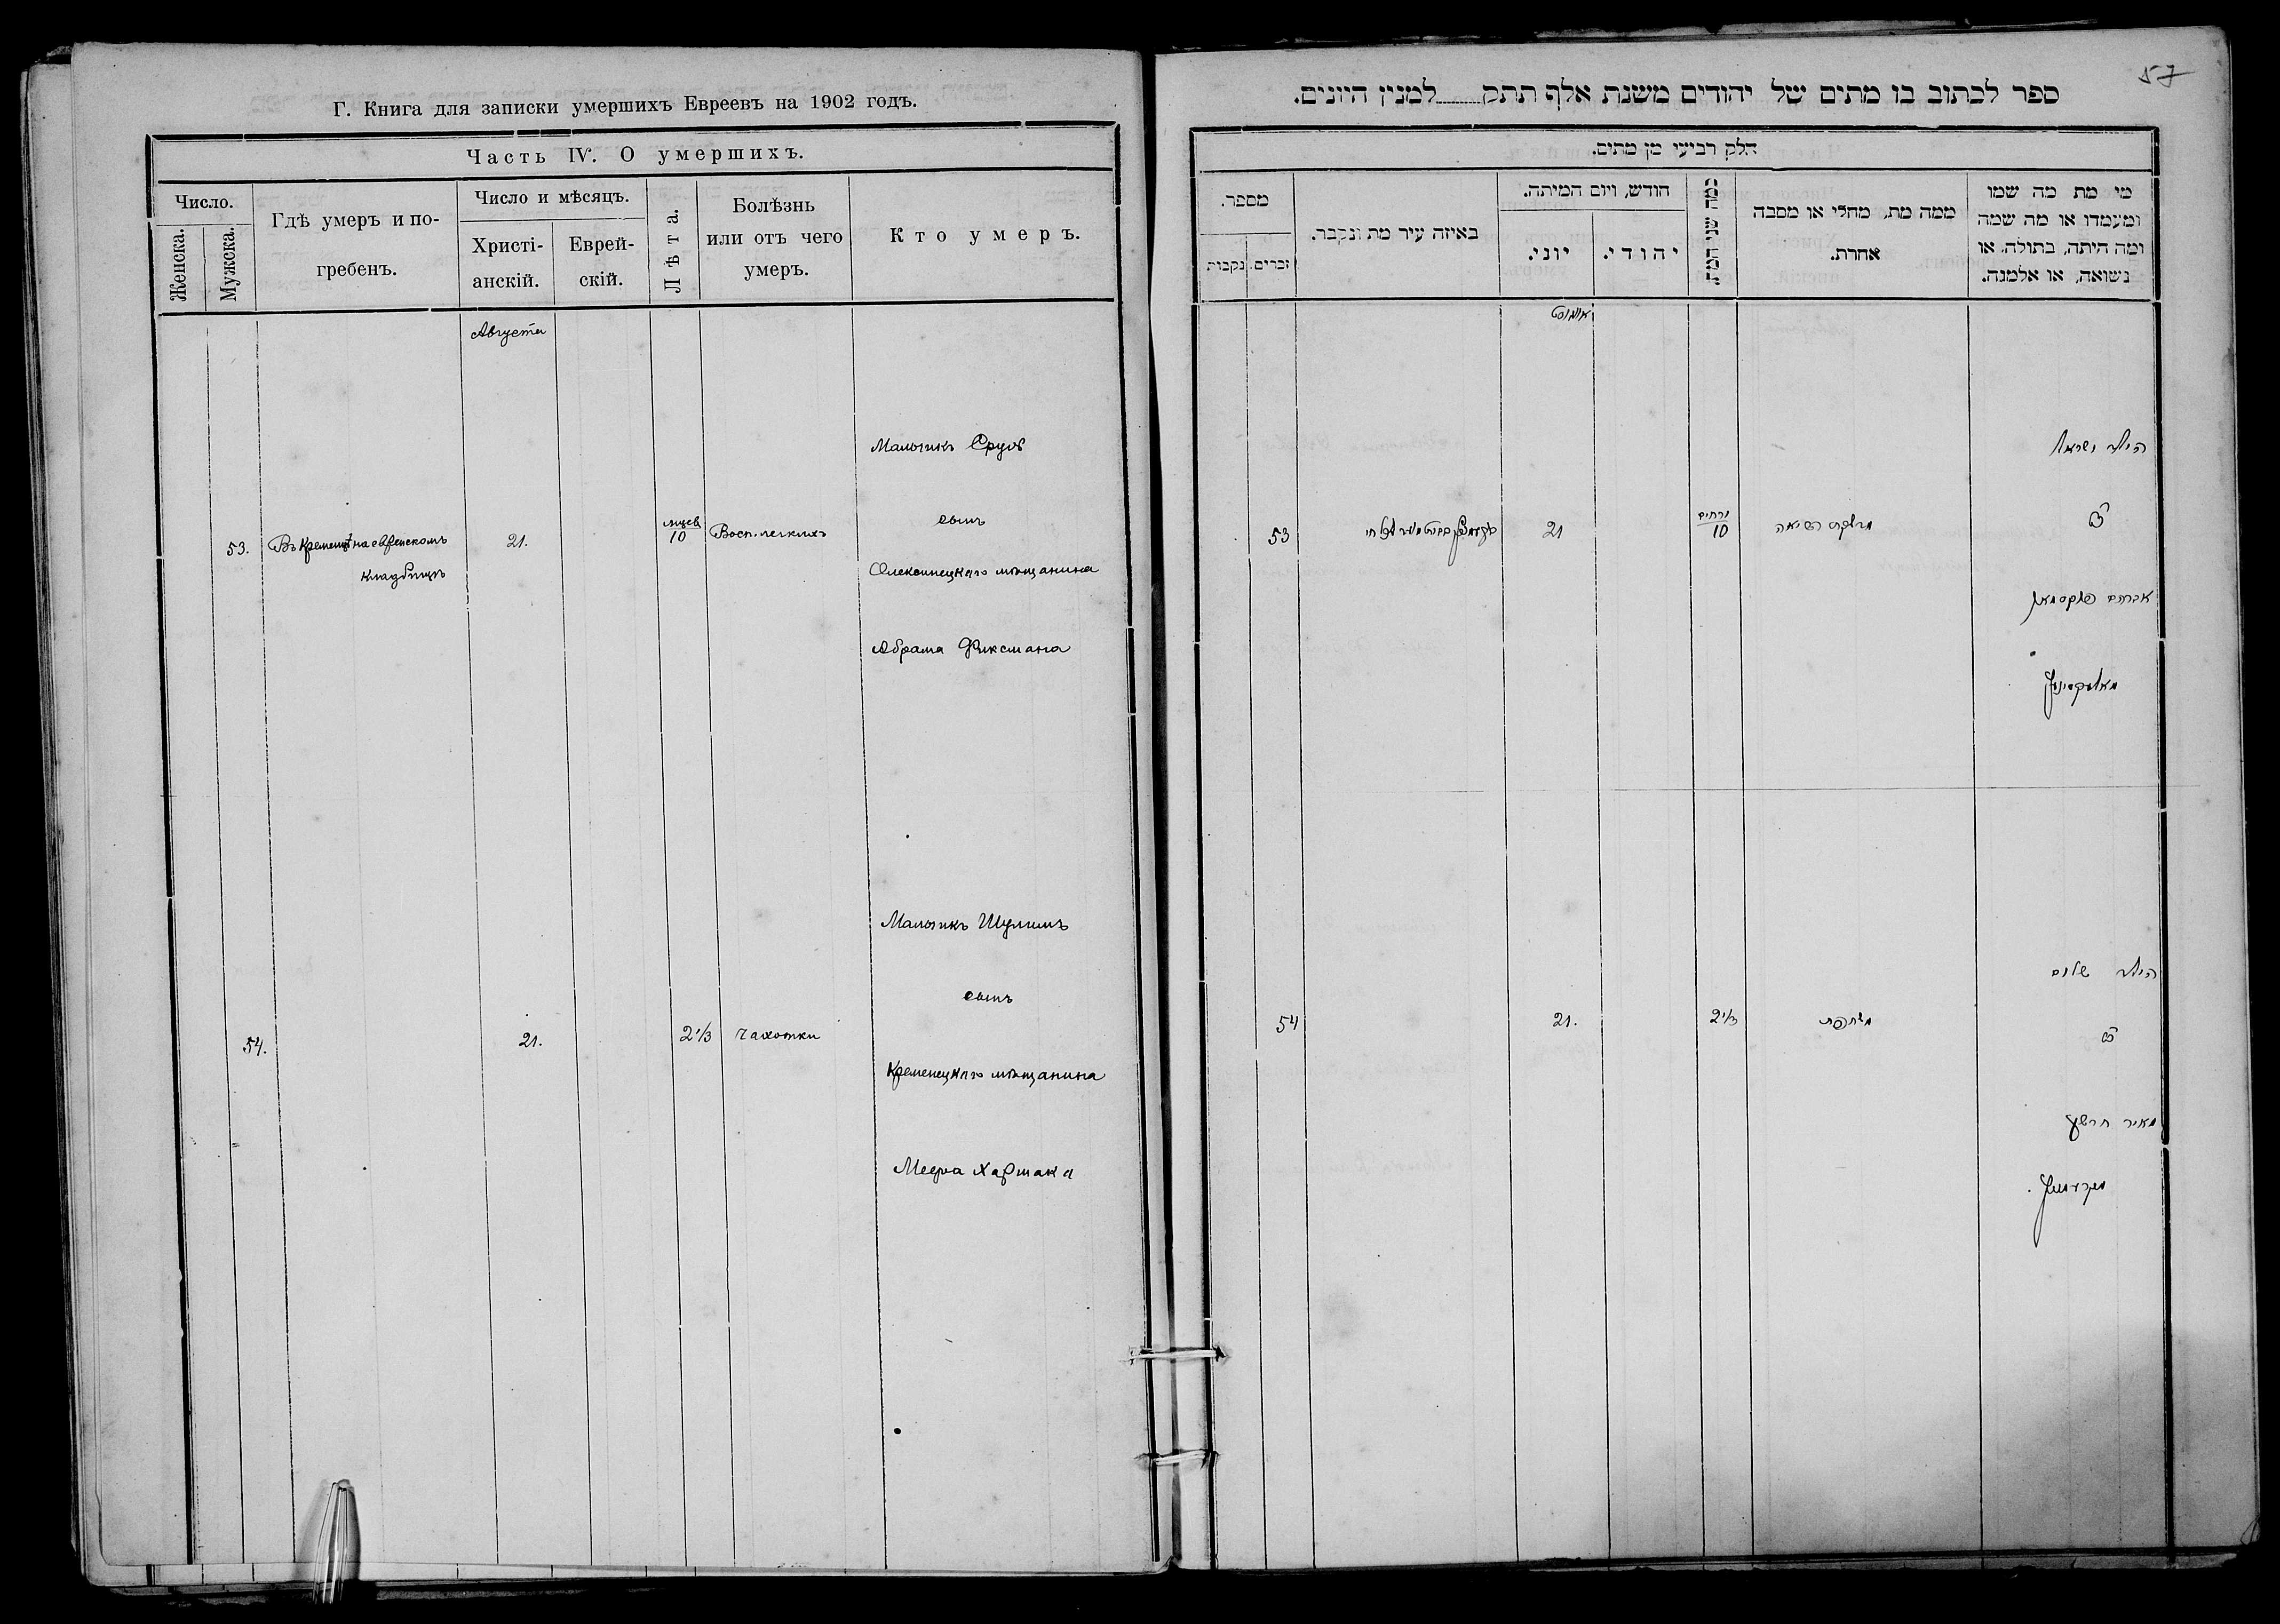 Г. Книга для записки умершихъ Евреевъ на 1902 годъ.
Часть IV. О умершихъ.
Число.
Женска.
Мужска.
Гдѣ умеръ и по-
гребенъ.
Число и мѣсяцъ.
Христі-
анскій.
Еврей-
скій.
Лѣта.
Болѣзнь
или отъ чего
умеръ.
Кто умеръ.
Августа
Мальчикъ Сруль
сынъ
53. Въ Кременцѣ на еврейскомъ 21. мѣсяцев 10 Восп. легкихъ
кладбищѣ
Олексинецкаго мѣщанина
Абрама Фиксмана
Мальчикъ Шулимъ
сынъ
54. 21. 2 1/3 Чахотки
Кременецкаго мѣщанина
Меера Хармака
57
ספר לכתוב בו מתים של יהודים משנת אלף תתק למנין היונים.
חלק רביעי מן מתים.
מספר.
נקבות
זכרים.
באיזה עיר מת ונקבר.
חודש, ויום המיתה.
יוני.
יהודי.
כמה שני המת.
ממה מת, מחלי או מסבה
אחרת.
מי מת מה שמו
ומעמדו או מה שמה
ומה היתה, בתולה, או
נשואה, או אלמנה.
אוגוסט
הילד ישראל
53 21 ירחים 10 דלקת הריאה
אברהם פיקסמאן
הילד שלום
54 21. 2 1/3 משחפת
מאיר